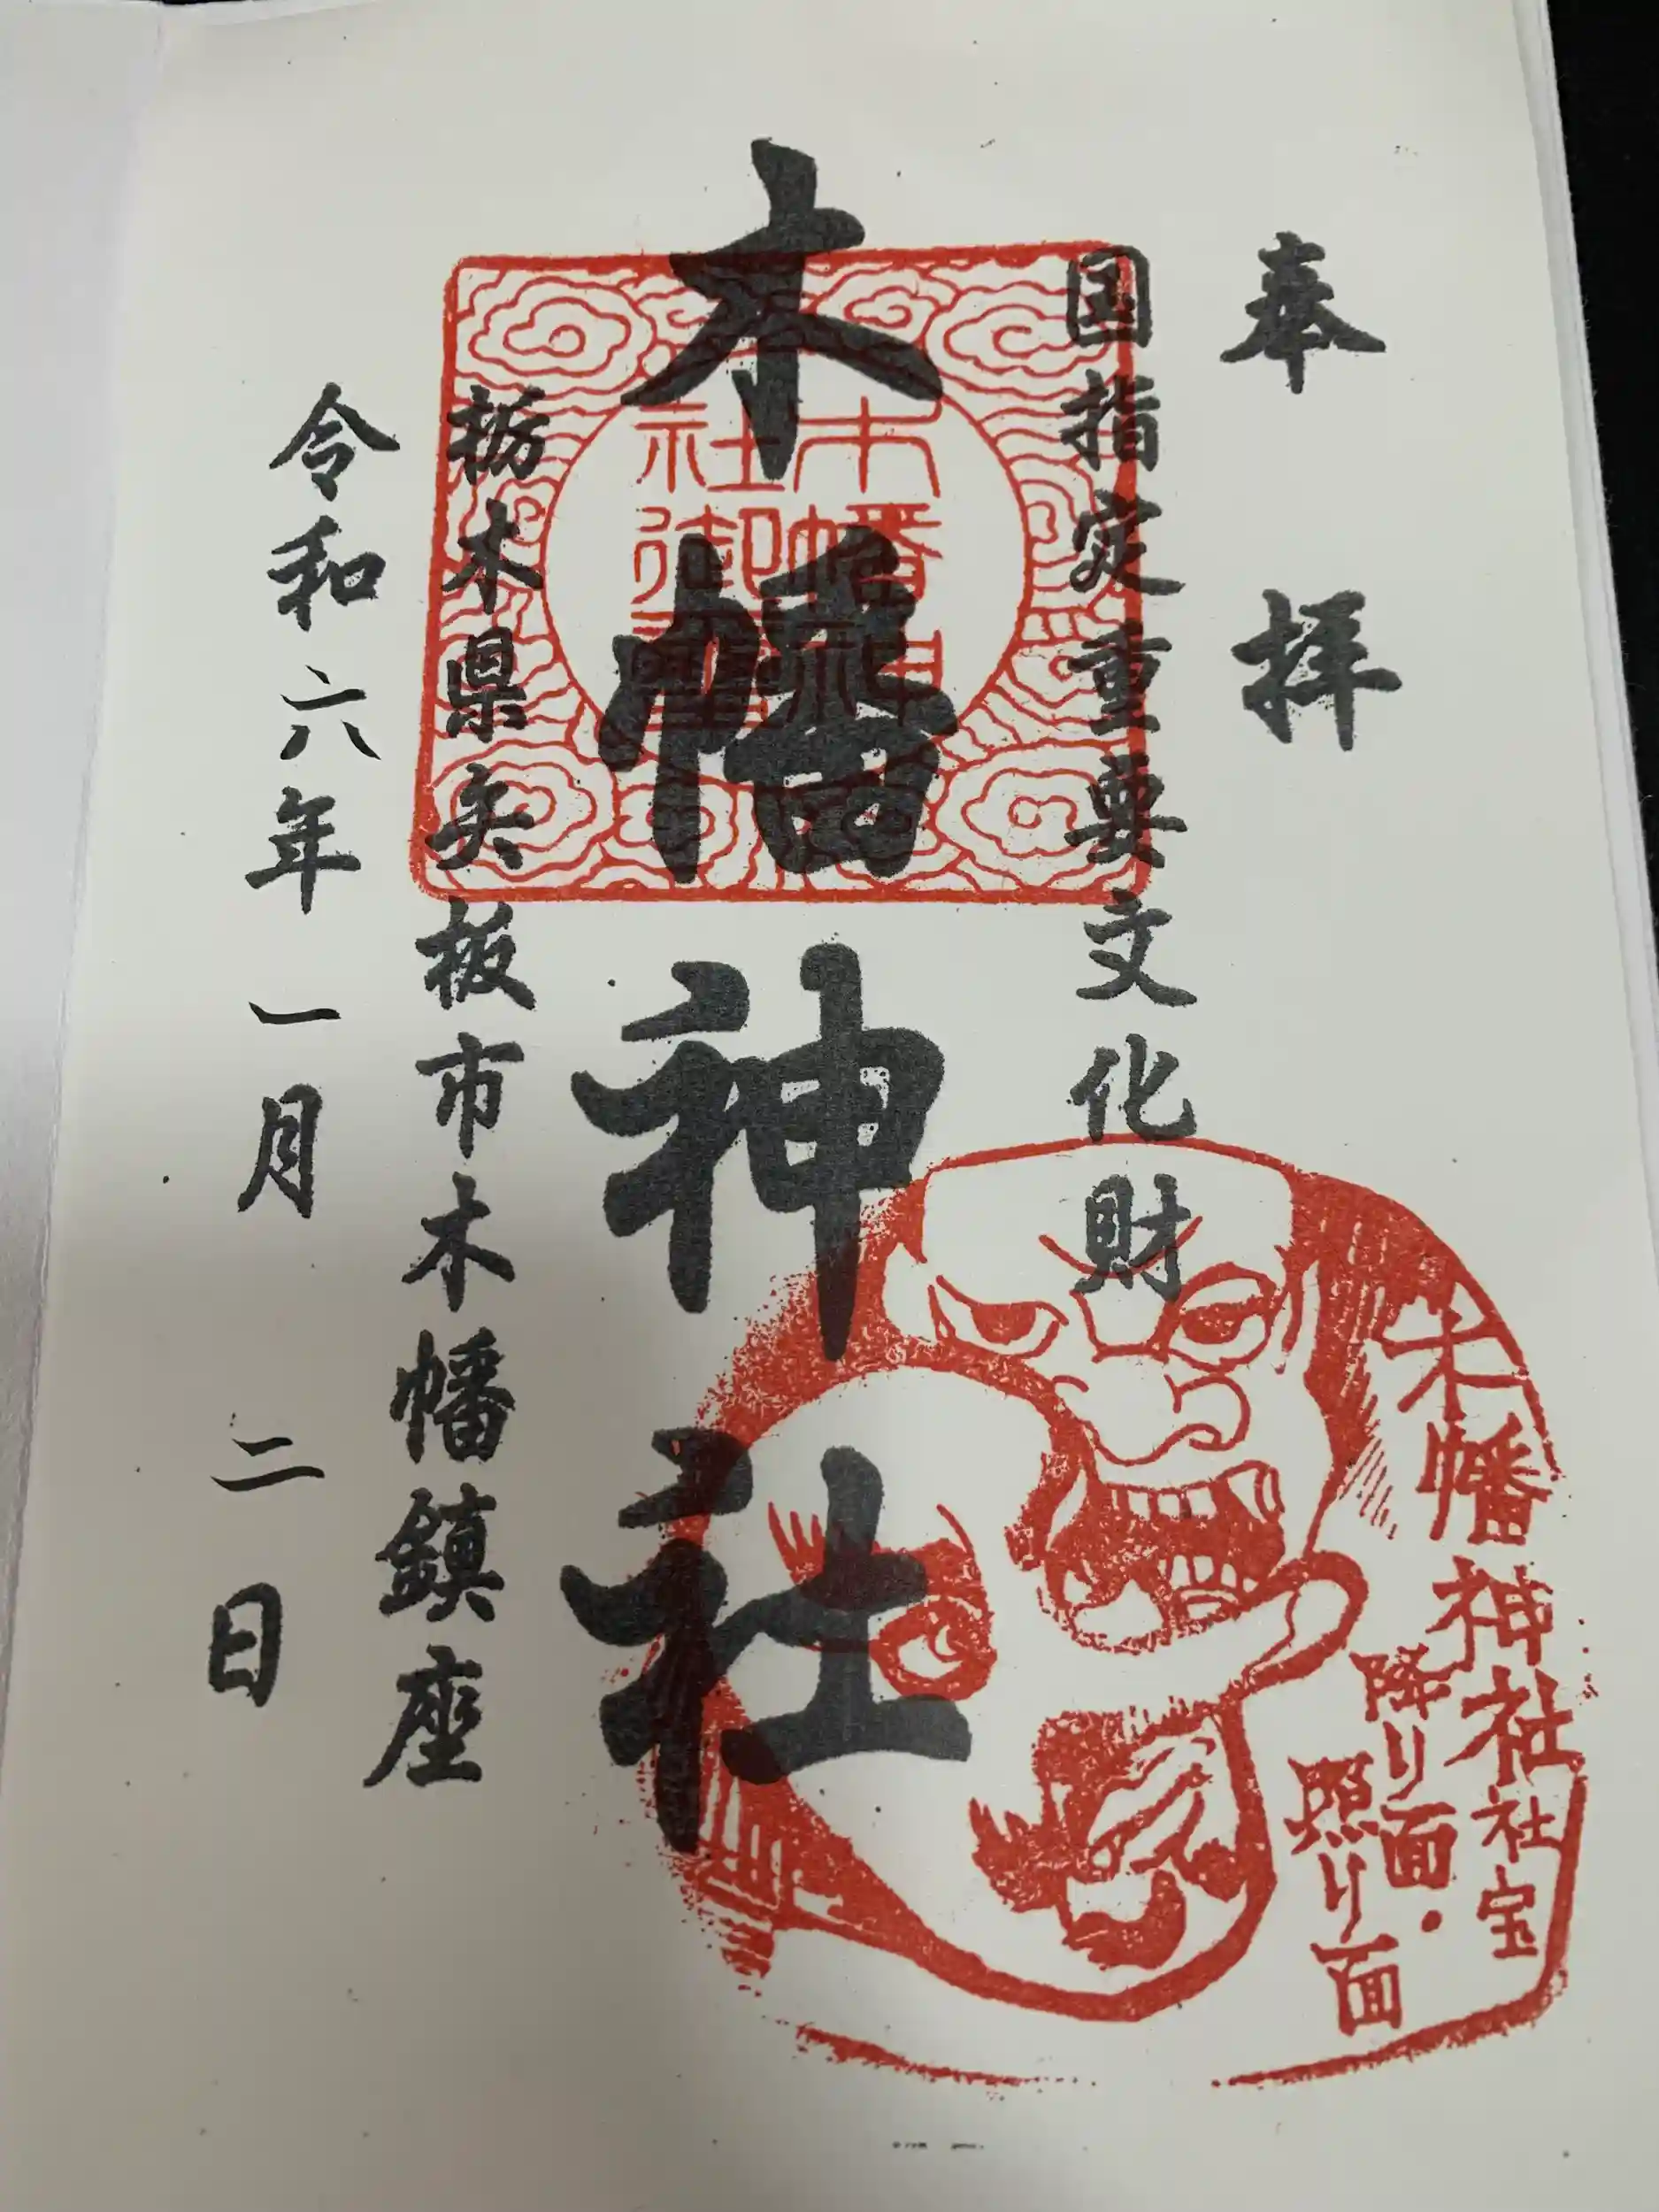 奉拝
国指定重要文化財
木幡神社
木幡神
社御璽
栃木県矢板市木幡鎮座
令和六年一月二日
木幡神社社宝
降り面・
照り面